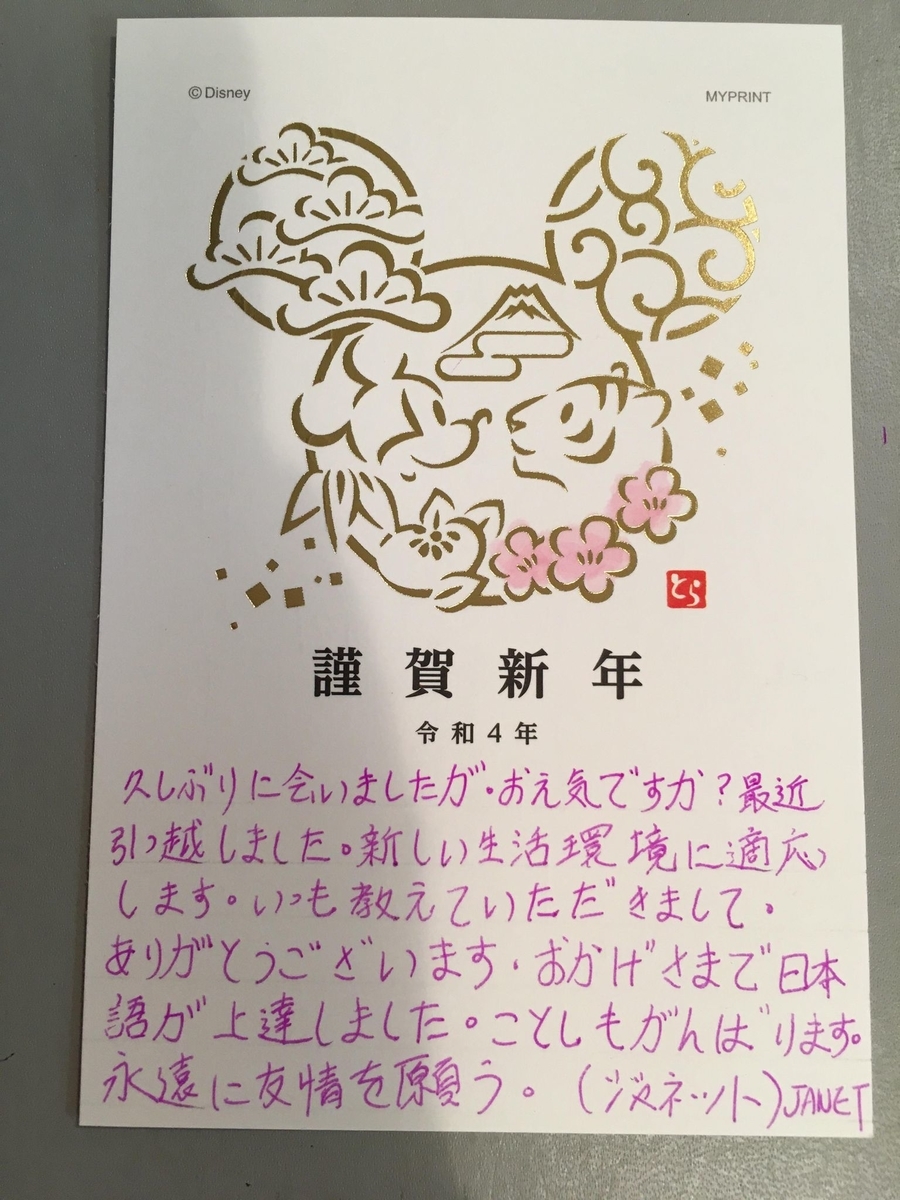 ©Disney
MYPRINT
とら
謹賀新年
令和4年
久しぶりに会いましたが。お元気ですか？最近
引っ越しました。新しい生活環境に適応
します。いつも教えていただきまして。
ありがとうございます。おかげさまで日本
語が上達しました。ことしもがんばります。
永遠に友情を願う。(ジャネット)JANET